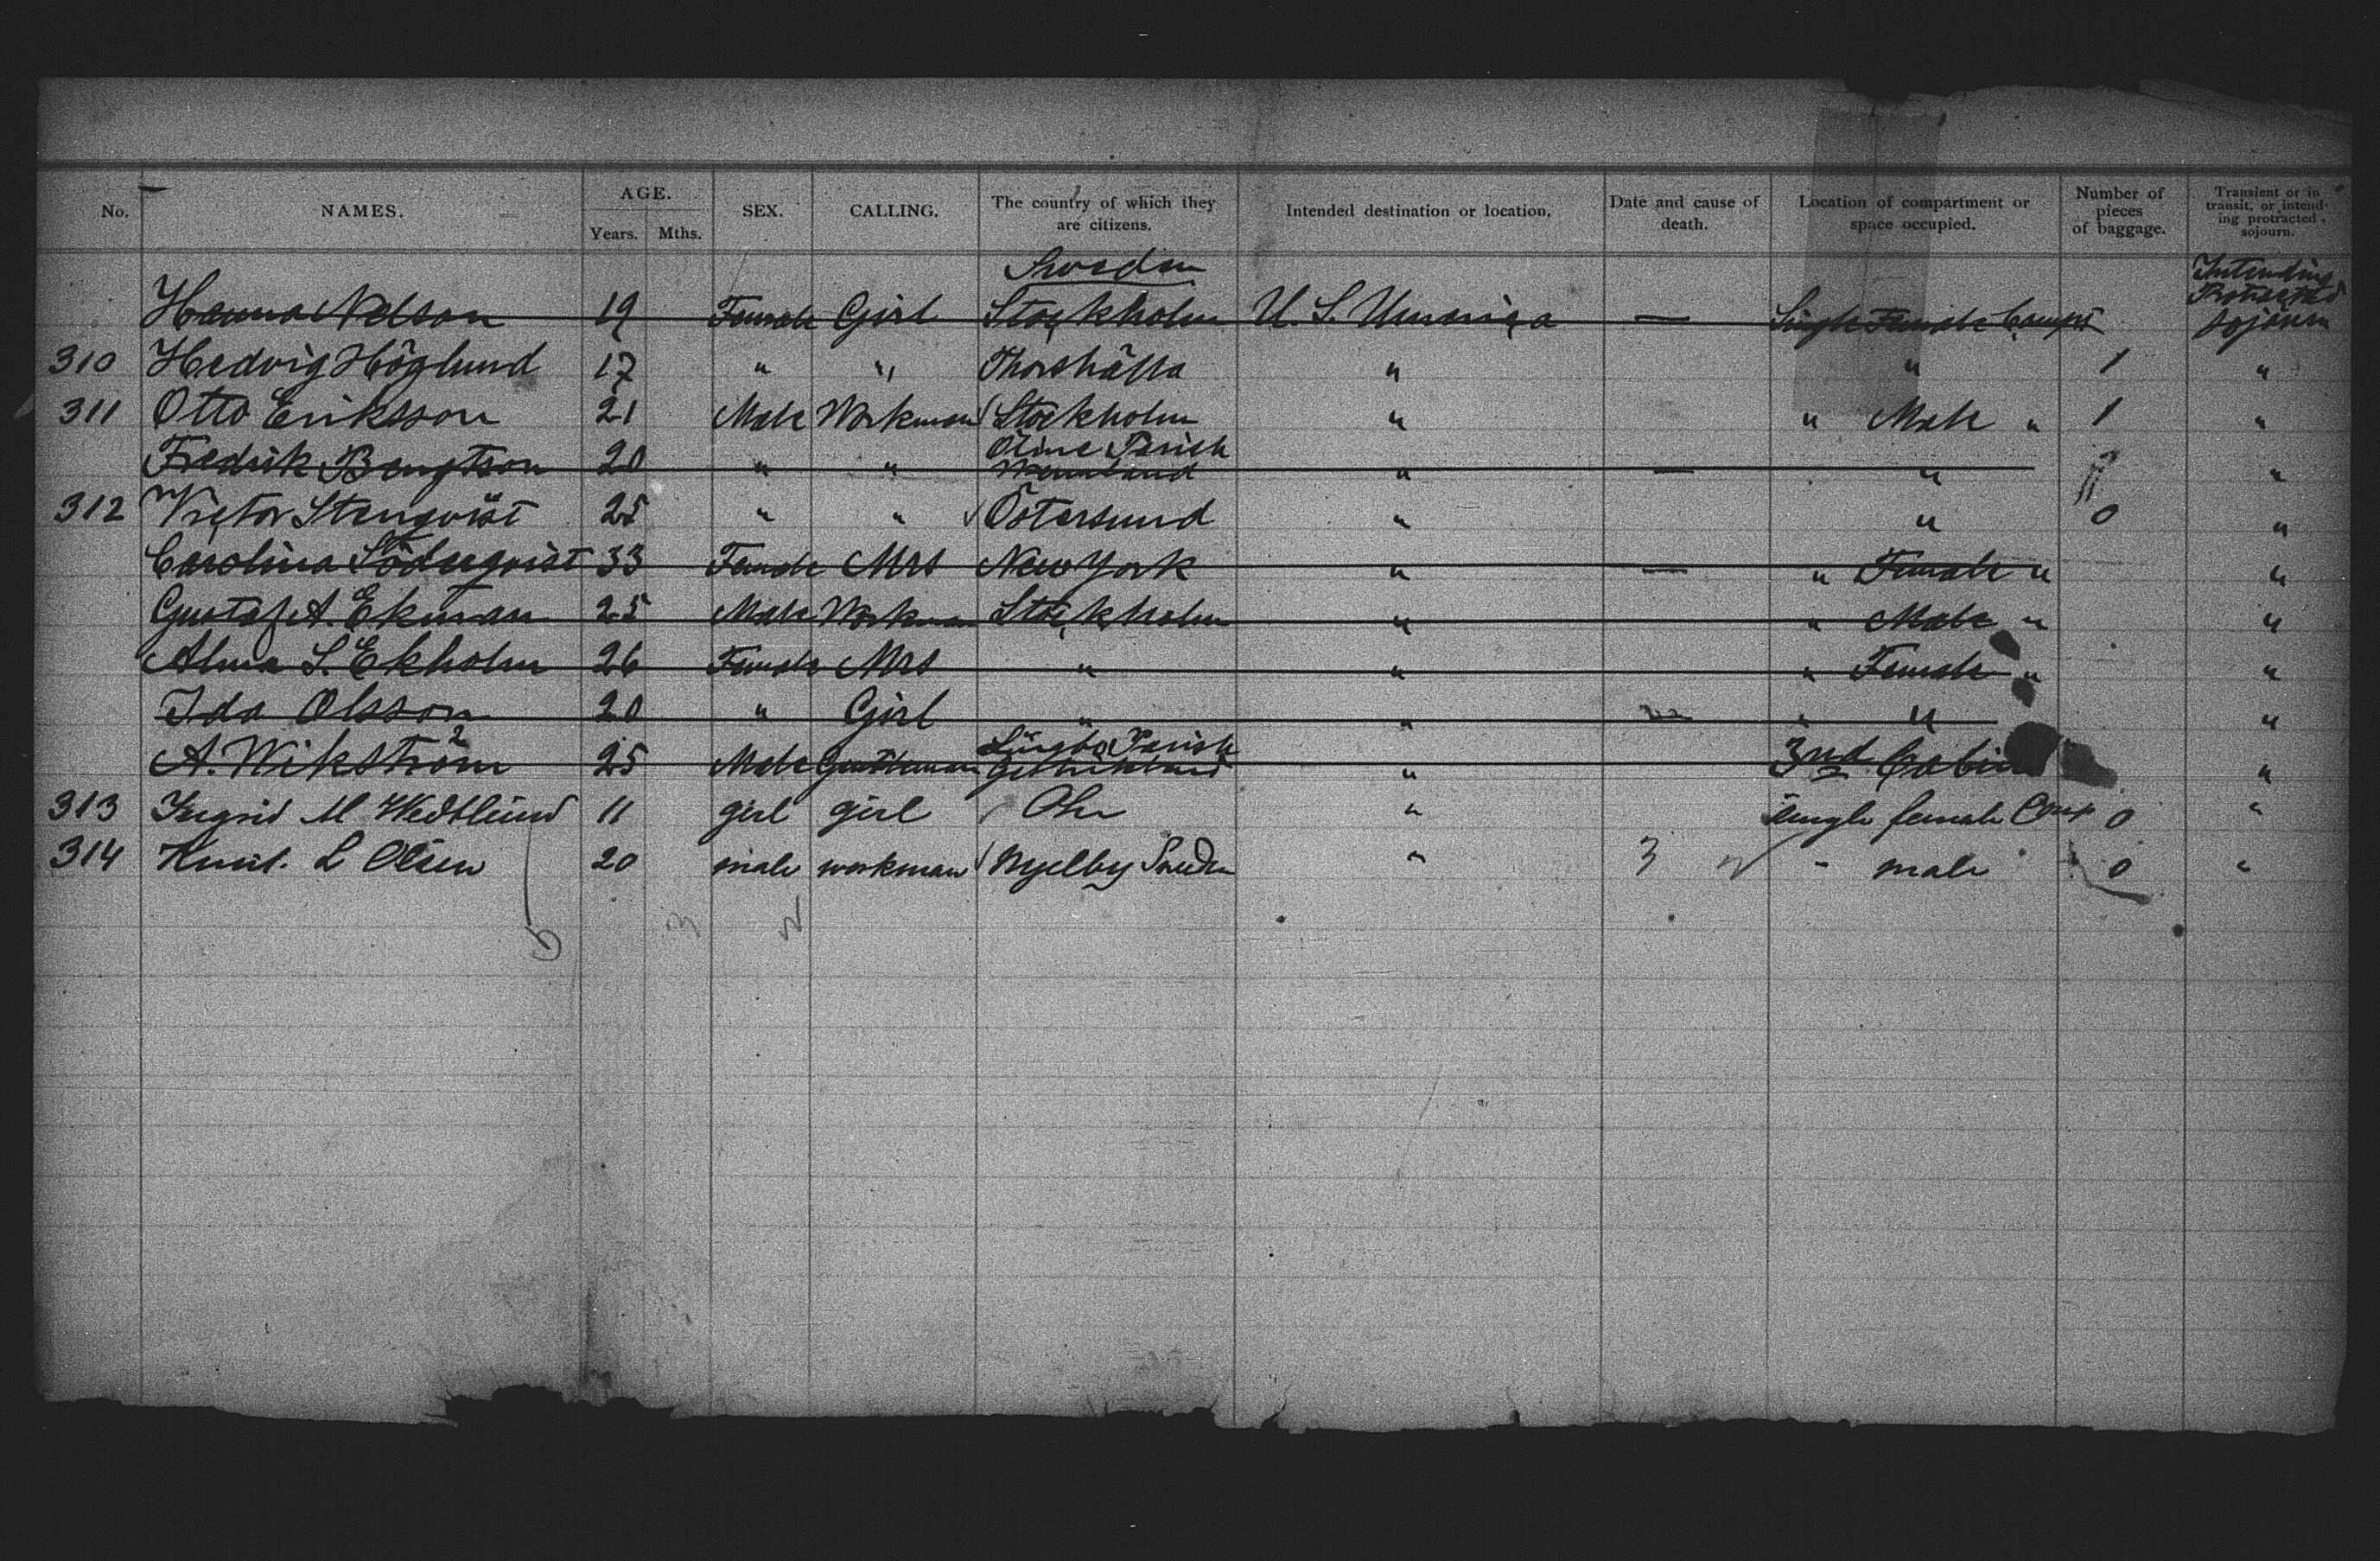 No. NAMES. AGE. Years. Mths. SEX. CALLING. The country of which they are citizens. Intended destination or location. Date and cause of death. Location of compartment or space occupied. Number of pieces of baggage. Transient or in transit, or intending protracted sojourn.
Sweden
Hanna Nelson 19 Female Girl Stockholm U. S. — Single Female Compt Intending Protracted Sojourn
310 Hedvig Höglund 17 " " " " 1 "
311 Otto Eriksson 21 Male Workman Stockholm " " Male " 1 "
Fredrik Bengtson 20 " " Parish " — " "
312 Victor Stenqvist 25 " " Östersund " " 0 "
Carolina Söderqvist 33 Female Mrs New York " — " Female " "
Gustaf A. Ekman 25 Male Workman Stockholm " " Male " "
Alma S. Ekholm 26 Female Mrs " " " Female " "
Ida Olsson 20 " Girl " " " " "
A. Wikström 25 Male Gentleman Parish " 3rd Cabin "
313 Ingrid M 11 girl girl " Single female Comp 0 "
314 Knut. L Olsen 20 male workman Sweden " 3 " male 0 "
3